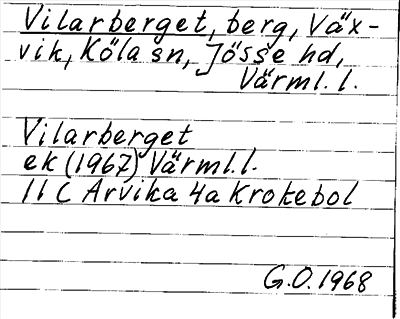 Vilarberget, berg, Väx-
vik, Köla sn, Jösse hd,
Värml. l.
Vilarberget
ek (1967) Värml. l.
11 C Arvika 4a Krokebol
G.O. 1968